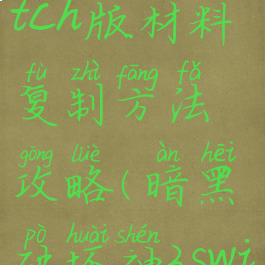 tch版材料
fù zhì fāng fǎ
复制方法
gōng lüè àn hēi
攻略(暗黑
pò huài shén
破坏神2swi